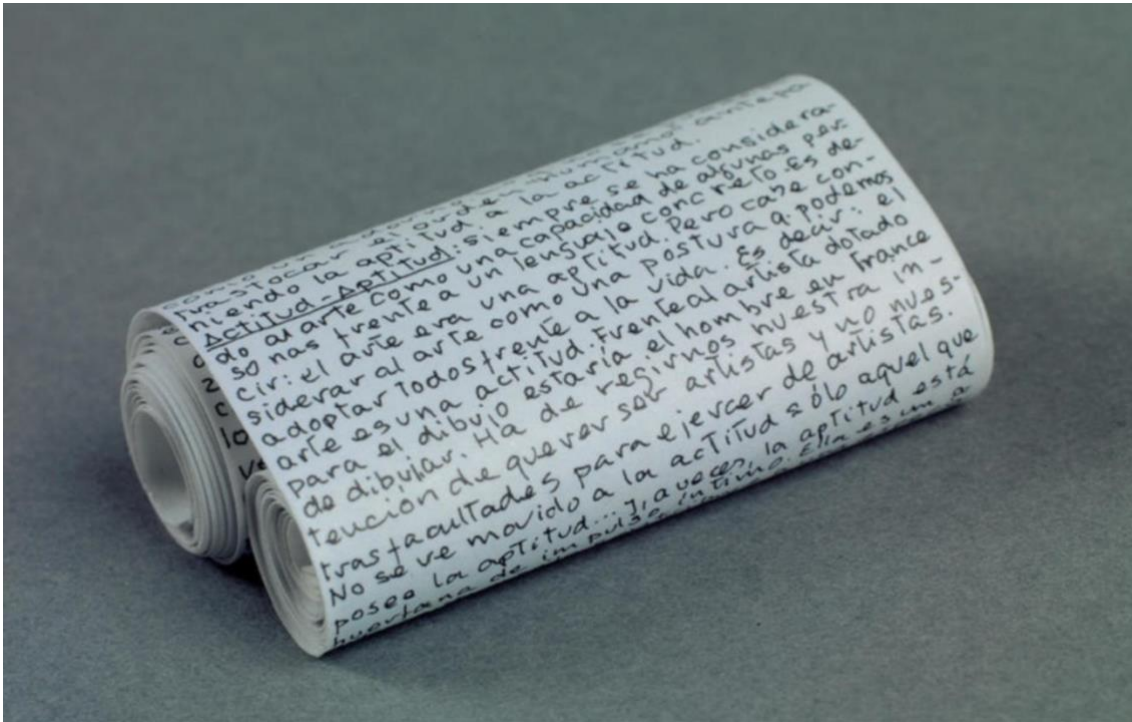 trastocar el orden humano: antepo-
niendo la aptitud a la actitud.
Actitud-Aptitud: siempre se ha considera-
do al arte como una capacidad de algunas per-
sonas frente a un lenguaje concreto. Es de-
cir: el arte era una aptitud. Pero cabe con-
siderar al arte como una postura q. podemos
adoptar todos frente a la vida. Es decir: el
arte es una actitud. Frente al artista dotado
para el dibujo estaría el hombre en trance
de dibujar. Ha de regirnos nuestra in-
tención de querer ser artistas y no nues-
tras facultades para ejercer de artistas.
No se ve movido a la actitud sólo aquel que
posee la aptitud... y, a veces, la aptitud está
huérfana de impulso íntimo. Ella es un a